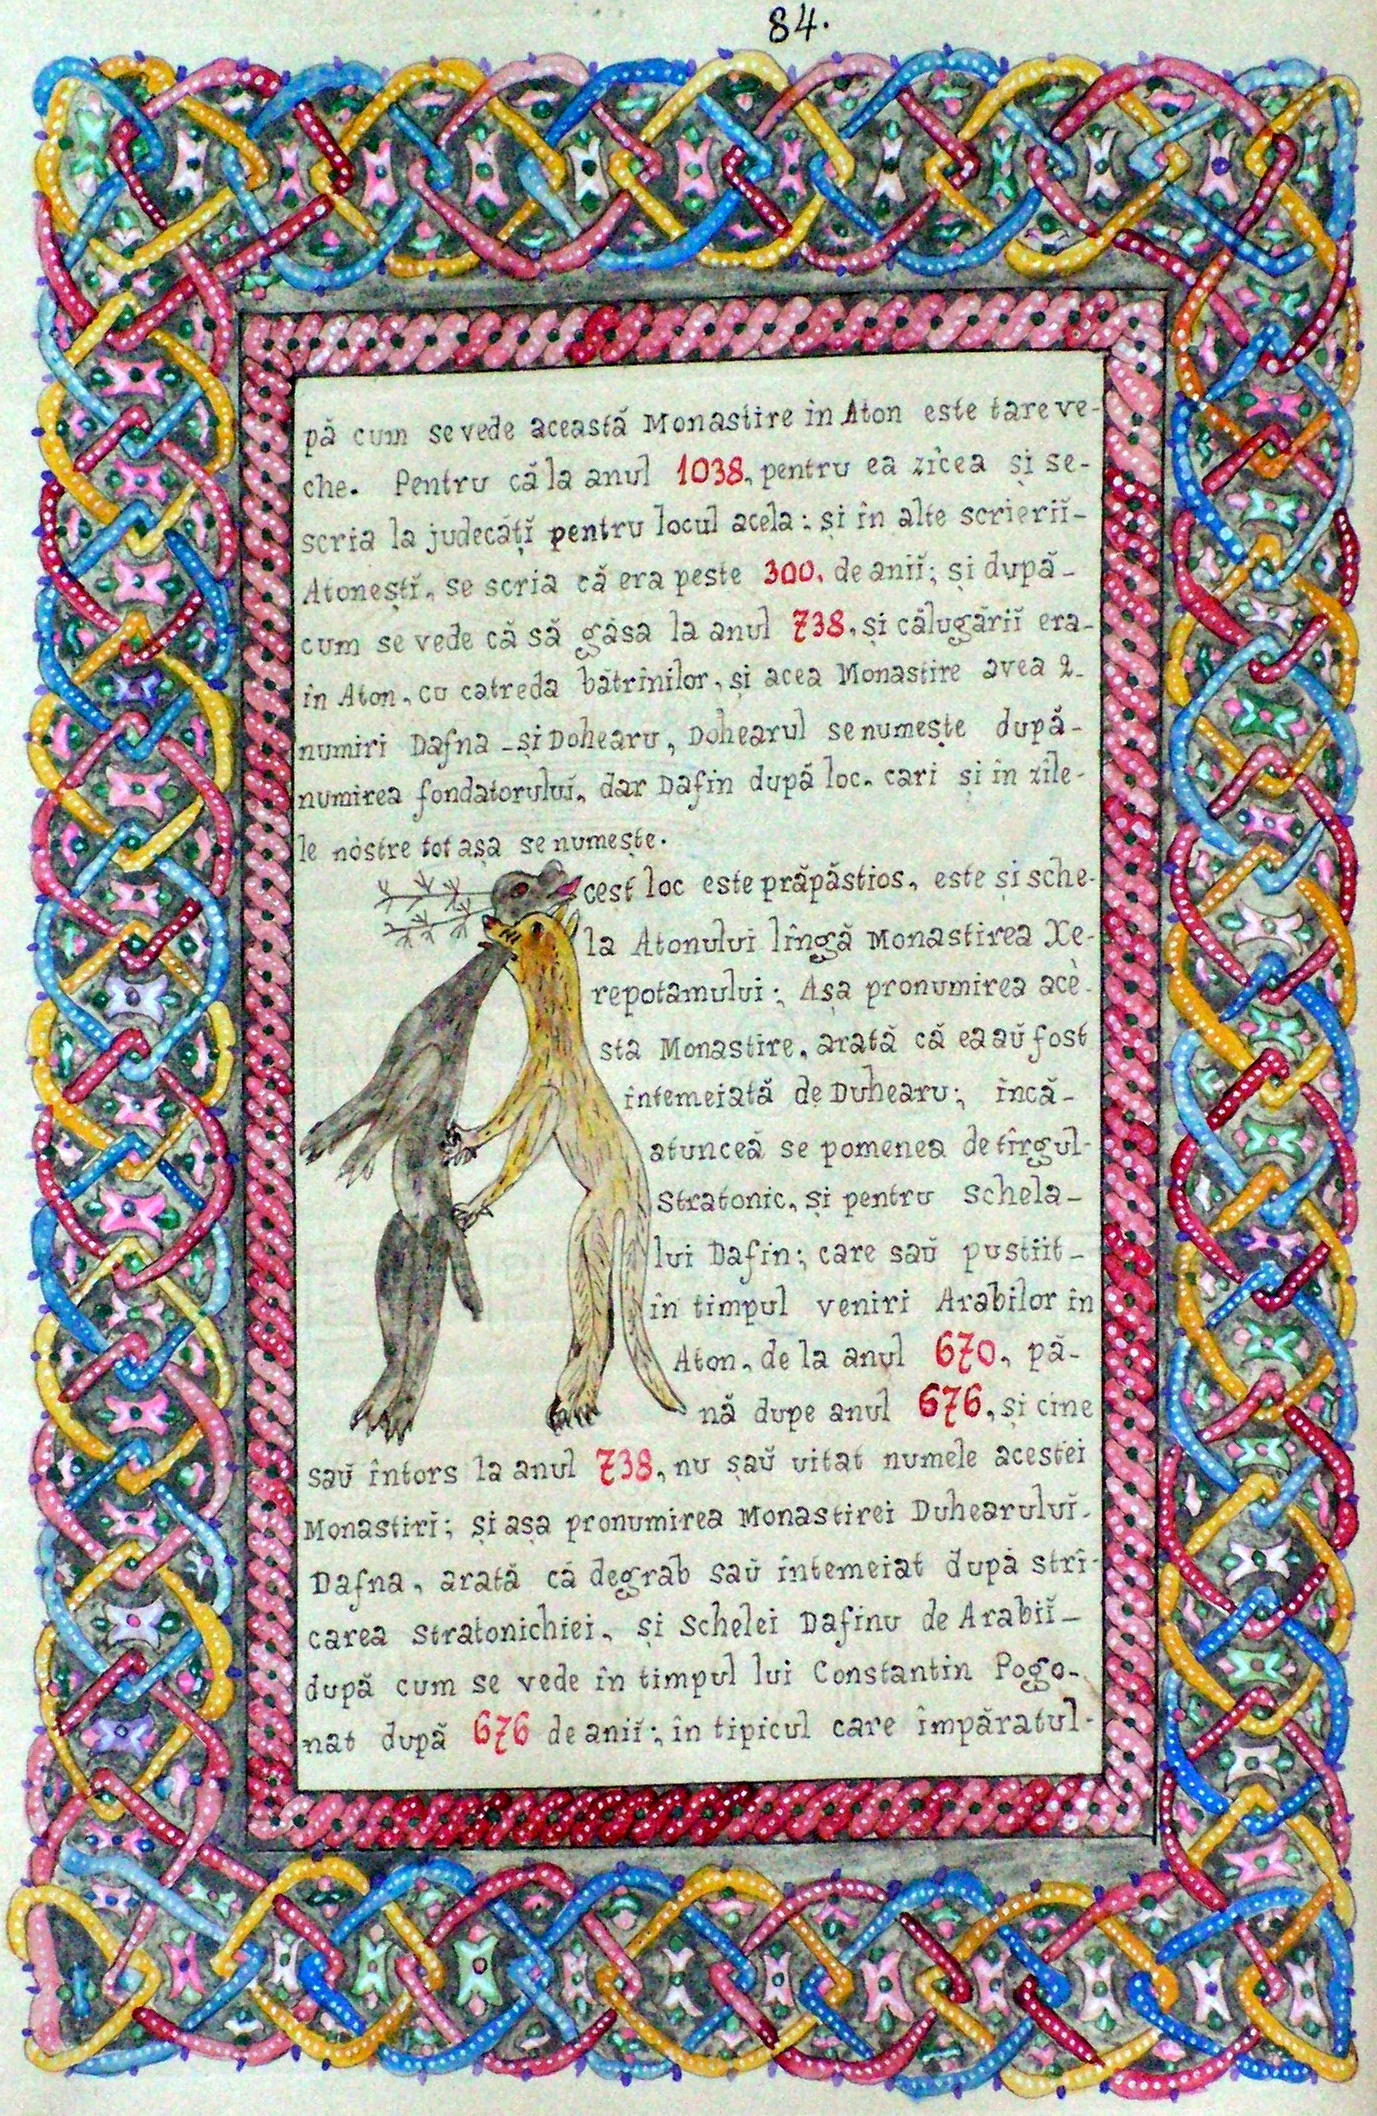 84.
pă cum se vede această Monastire in Aton este tare ve-
che. Pentru că la anul 1038, pentru ea zicea și se-
scria la judecățĭ pentru locul acela; și în alte scrieriĭ-
Atoneștĭ, se scria că era peste 300, de aniĭ; și după-
cum se vede că să găsa la anul 738, și călugăriĭ era-
în Aton, cu catreda bătrînilor, și acea Monastire avea 2-
numiri Dafna - și Dohearu, Dohearul se numește după-
numirea fondatoruluĭ, dar Dafin după loc, cari și în zile-
le nòstre tot așa se numește.
cest loc este prăpăstios, este și sche-
la Atonului lîngă Monastirea Xe-
repotamului; Așa pronumirea acè-
sta Monastire, arată că ea aŭ fost
întemeiată de Duhearu; încă-
atuncea se pomenea de tîrgul-
Stratonic, și pentru schela-
lui Dafin; care saŭ pustiit-
în timpul veniri Arabilor în
Aton, de la anul 670, pă-
nă dupe anul 676, și cine
saŭ întors la anul 738, nu saŭ uitat numele acestei
Monastiri; și așa pronumirea Monastirei Duhearuluĭ-
Dafna, arată că degrab saŭ întemeiat după stri-
carea Stratonichiei, și Schelei Dafinu de Arabiĭ-
după cum se vede în timpul lui Constantin Pogo-
nat după 676 de aniĭ; în tipicul care împăratul-